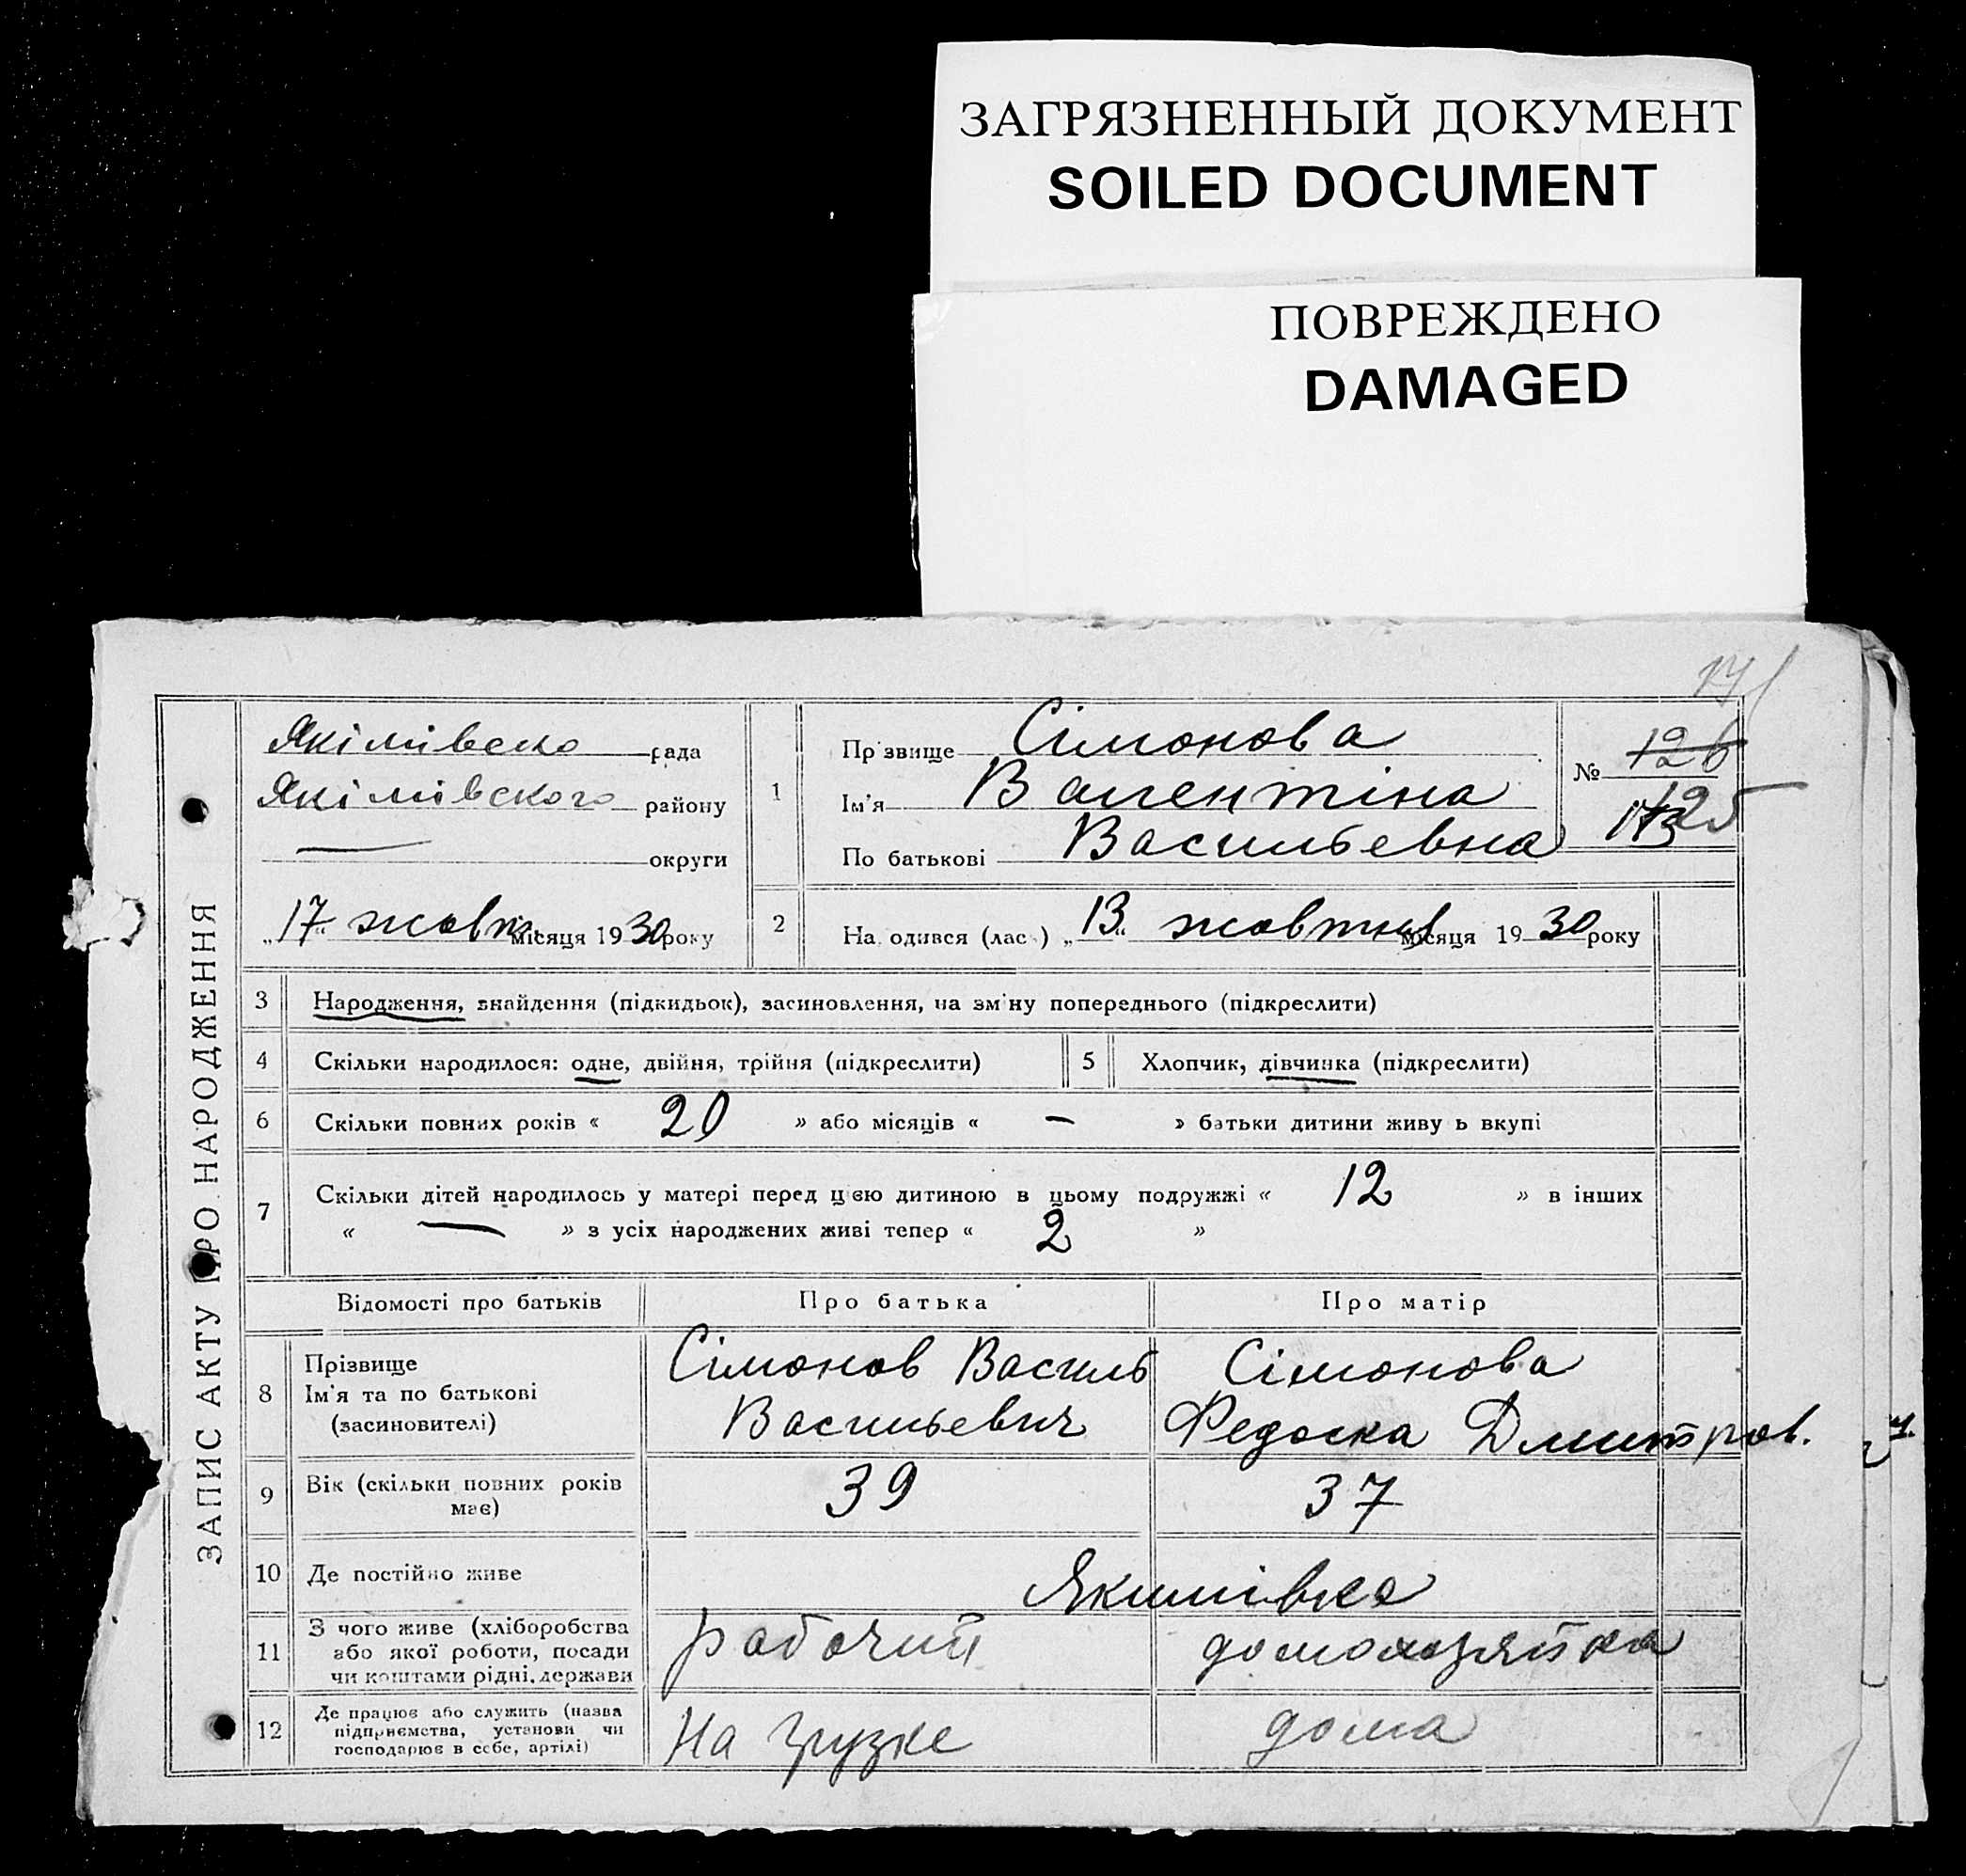 ЗАГРЯЗНЕННЫЙ ДОКУМЕНТ
SOILED DOCUMENT
ПОВРЕЖДЕНО
DAMAGED
ЗАПИС АКТУ ПРО НАРОДЖЕННЯ
Якімівсько рада
Якімівского району
округи
„17“ жовтн. місяця 1930 року
1
Прізвище Сімонова
Ім'я Валентіна
По батькові Васильевна
№ 126
125
2
Народився (лась) „13“ жовтня місяця 1930 року
3 Народження, знайдення (підкидьок), засиновлення, на зміну попереднього (підкреслити)
4 Скільки народилося: одне, двійня, трійня (підкреслити) 5 Хлопчик, дівчинка (підкреслити)
6 Скільки повних років « 20 » або місяців « — » батьки дитини живуть вкупі
7 Скільки дітей народилось у матері перед цією дитиною в цьому подружжі « 12 » в інших
« — » з усіх народжених живі тепер « 2 »
Відомості про батьків Про батька Про матір
8 Прізвище
Ім'я та по батькові
(засиновителі)
Сімонов Василь
Васильевич
Сімонова
Федоска Дмитров.
9 Вік (скільки повних років
має)
39 37
10 Де постійно живе Якимівка
11 З чого живе (хліборобства
або якої роботи, посади
чи коштами рідні, держави
рабочий домохозяйка
12 Де працює або служить (назва
підприємства, установи чи
господарює в себе, артілі)
На грузке дома